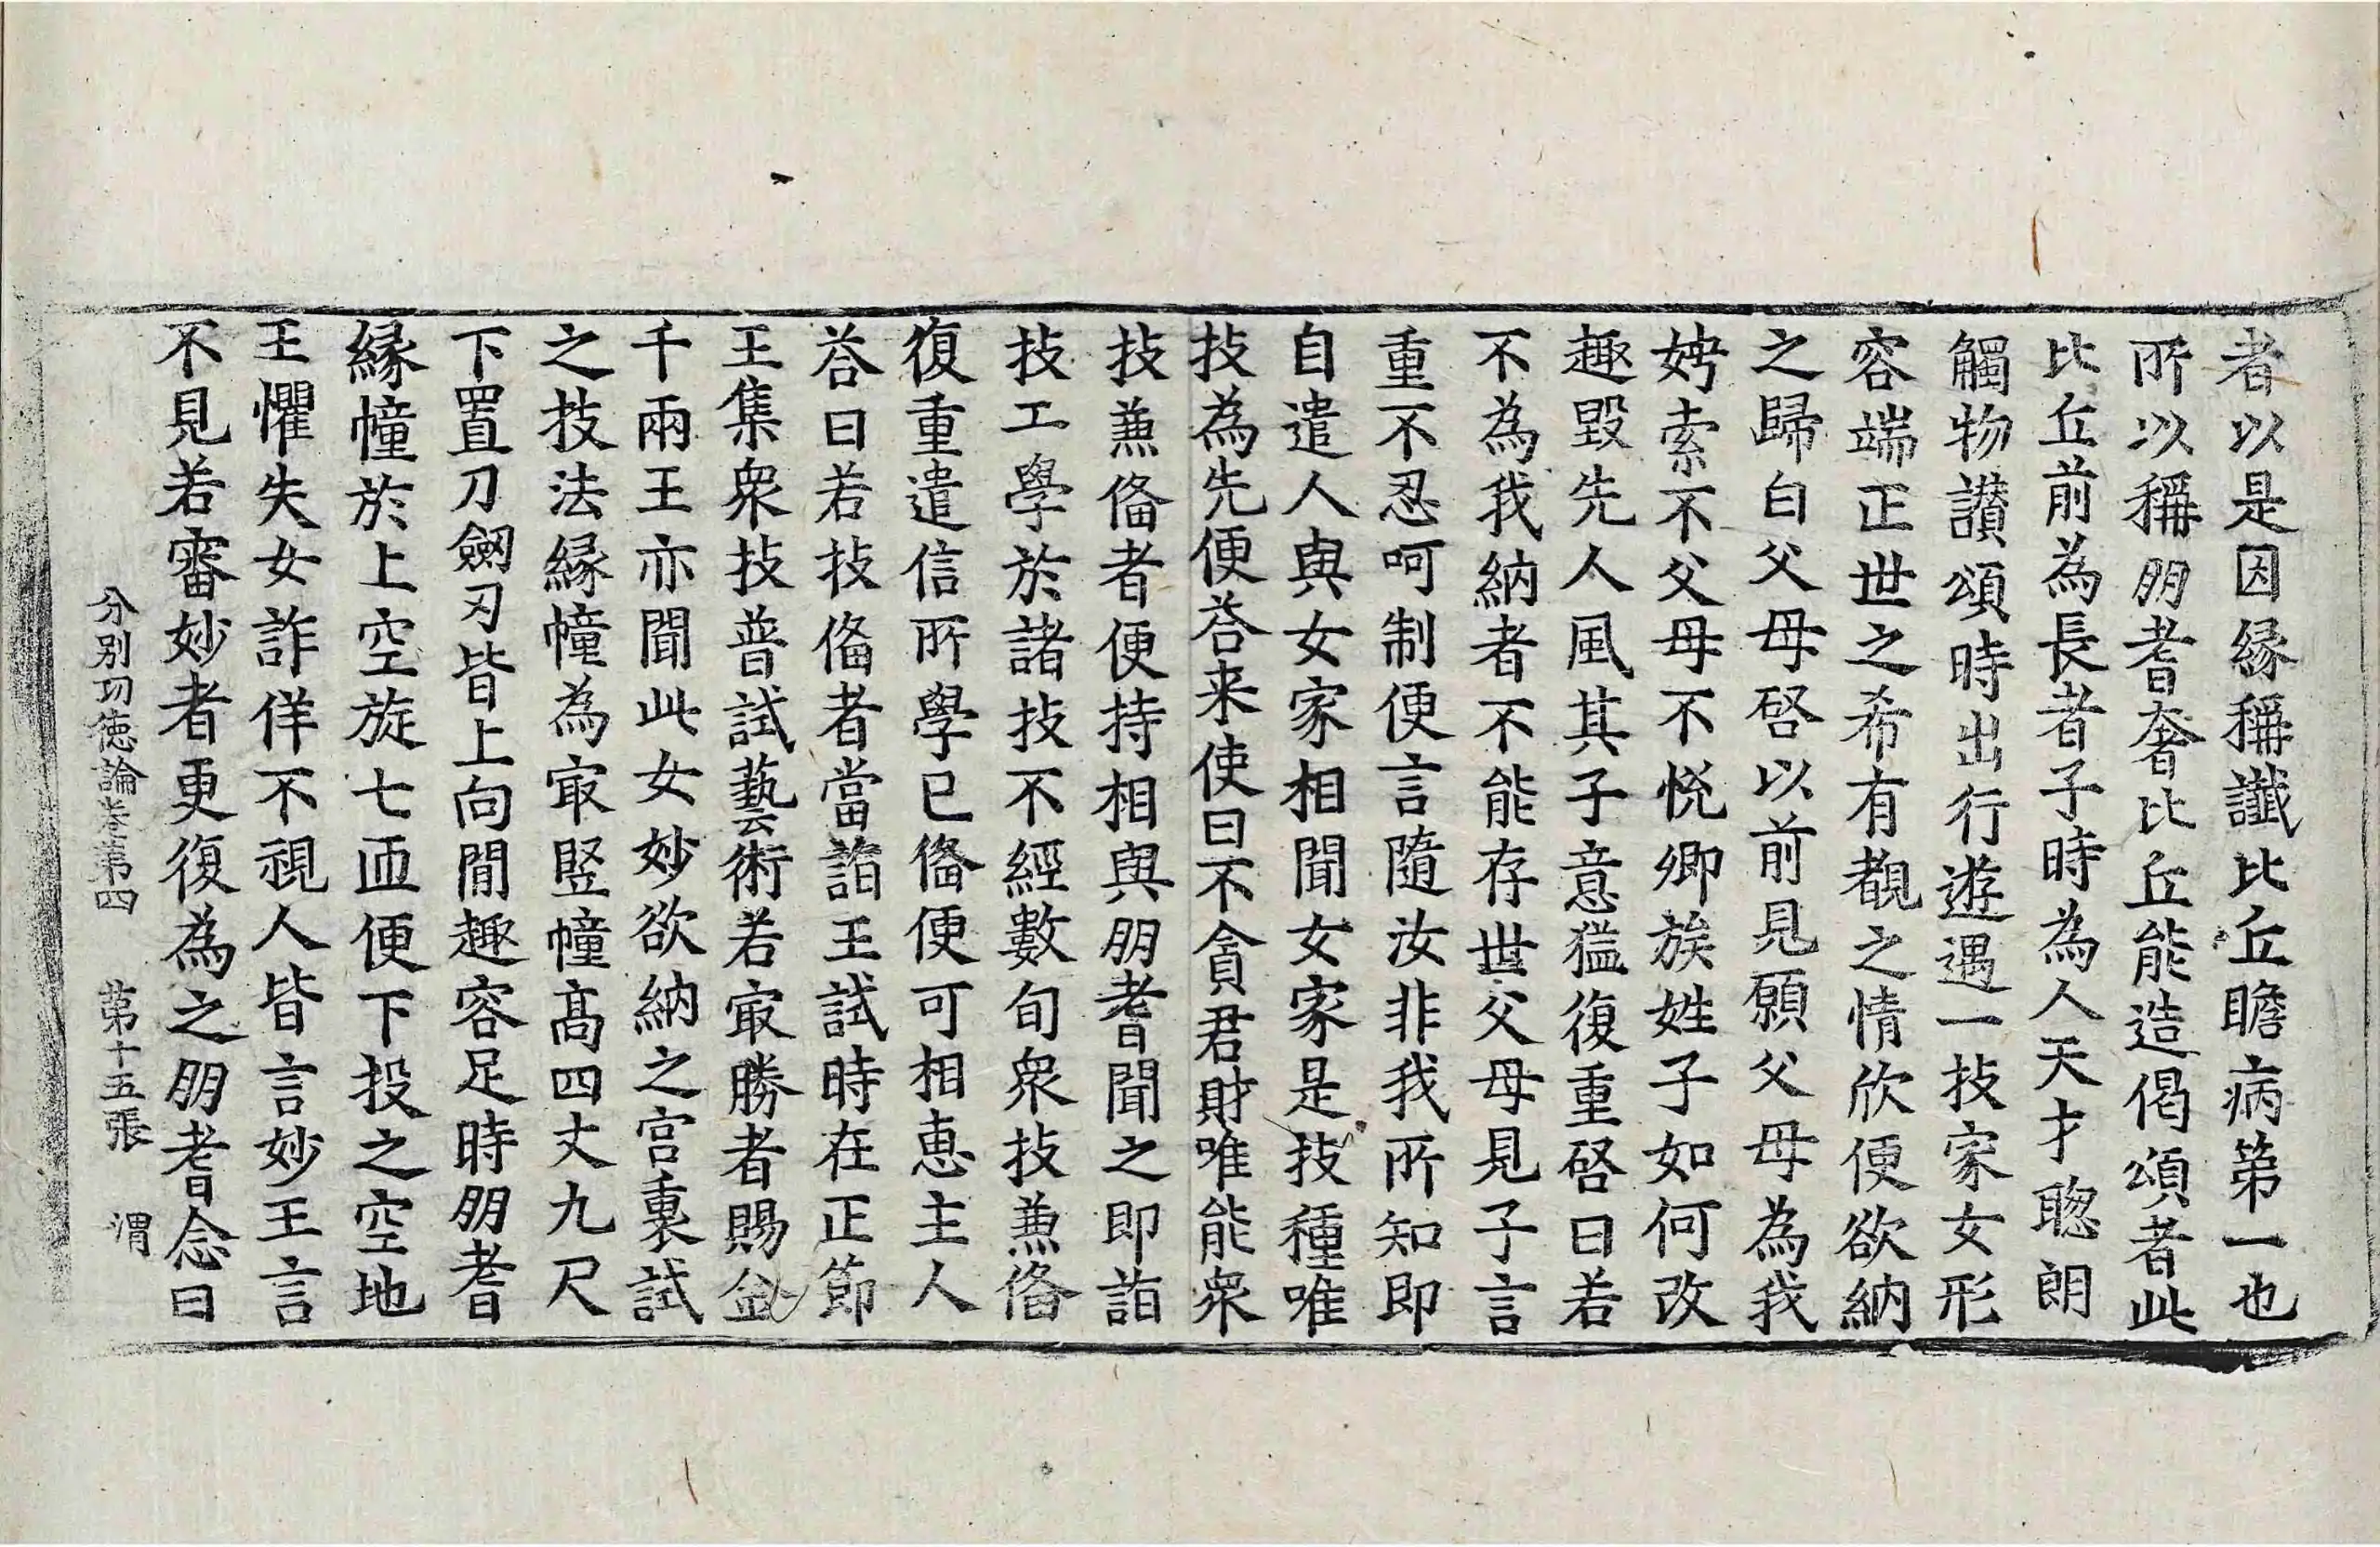 者以是因縁稱讖比丘瞻病第一也
所以稱朋耆奢比丘能造偈頌者此
比丘前為長者子時為人天才聦朗
觸物讃頌時出行遊遇一技家女形
容端正世之希有覩之情欣便欲納
之歸白父母啓以前見願父母為我
娉索不父母不悅卿族姓子如何改
趣毀先人風其子意猛復重啓曰若
不為我納者不能存世父母見子言
重不忍呵制便言隨汝非我所知即
自遣人與女家相聞女家是技種唯
技為先便荅来使曰不貪君財唯能衆
技兼俻者便持相與朋耆聞之即詣
技工學於諸技不經數旬衆技兼俻
復重遣信所學已俻便可相恵主人
荅曰若技俻者當詣王試時在正節
王集衆技普試藝術若㝡勝者賜金
千兩王亦聞此女妙欲納之宫裏試
之技法緣幢為㝡竪幢髙四丈九尺
下置刀劒刃皆上向間趣容足時朋耆
緣幢於上空旋七迊便下投之空地
王懼失女詐佯不視人皆言妙王言
不見若審妙者更復為之朋耆念曰
分别功徳論卷第四　第十五張　渭